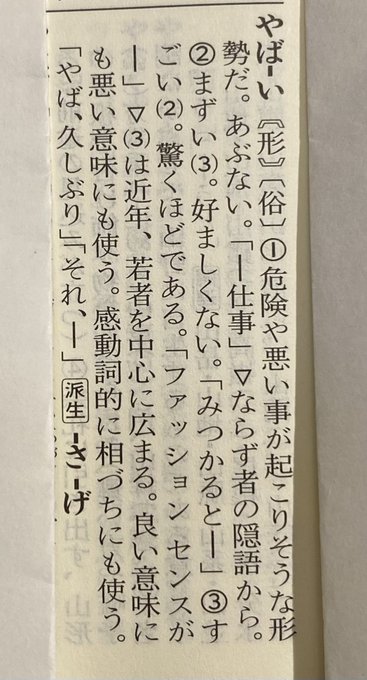 やば-い〘形〙〔俗〕①危険や悪い事が起こりそうな形
勢だ。あぶない。「―仕事」▽ならず者の隠語から。
②まずい⑶。好ましくない。「みつかると―」③す
ごい⑵。驚くほどである。「ファッションセンスが
―」▽⑶は近年、若者を中心に広まる。良い意味に
も悪い意味にも使う。感動詞的に相づちにも使う。
「やば、久しぶり」「それ、―」派生-さ-げ